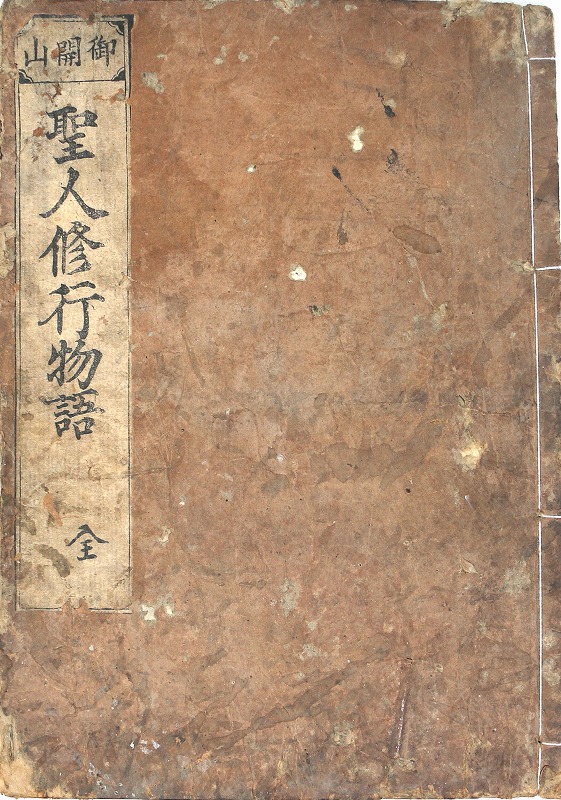 御開山
聖人修行物語
全